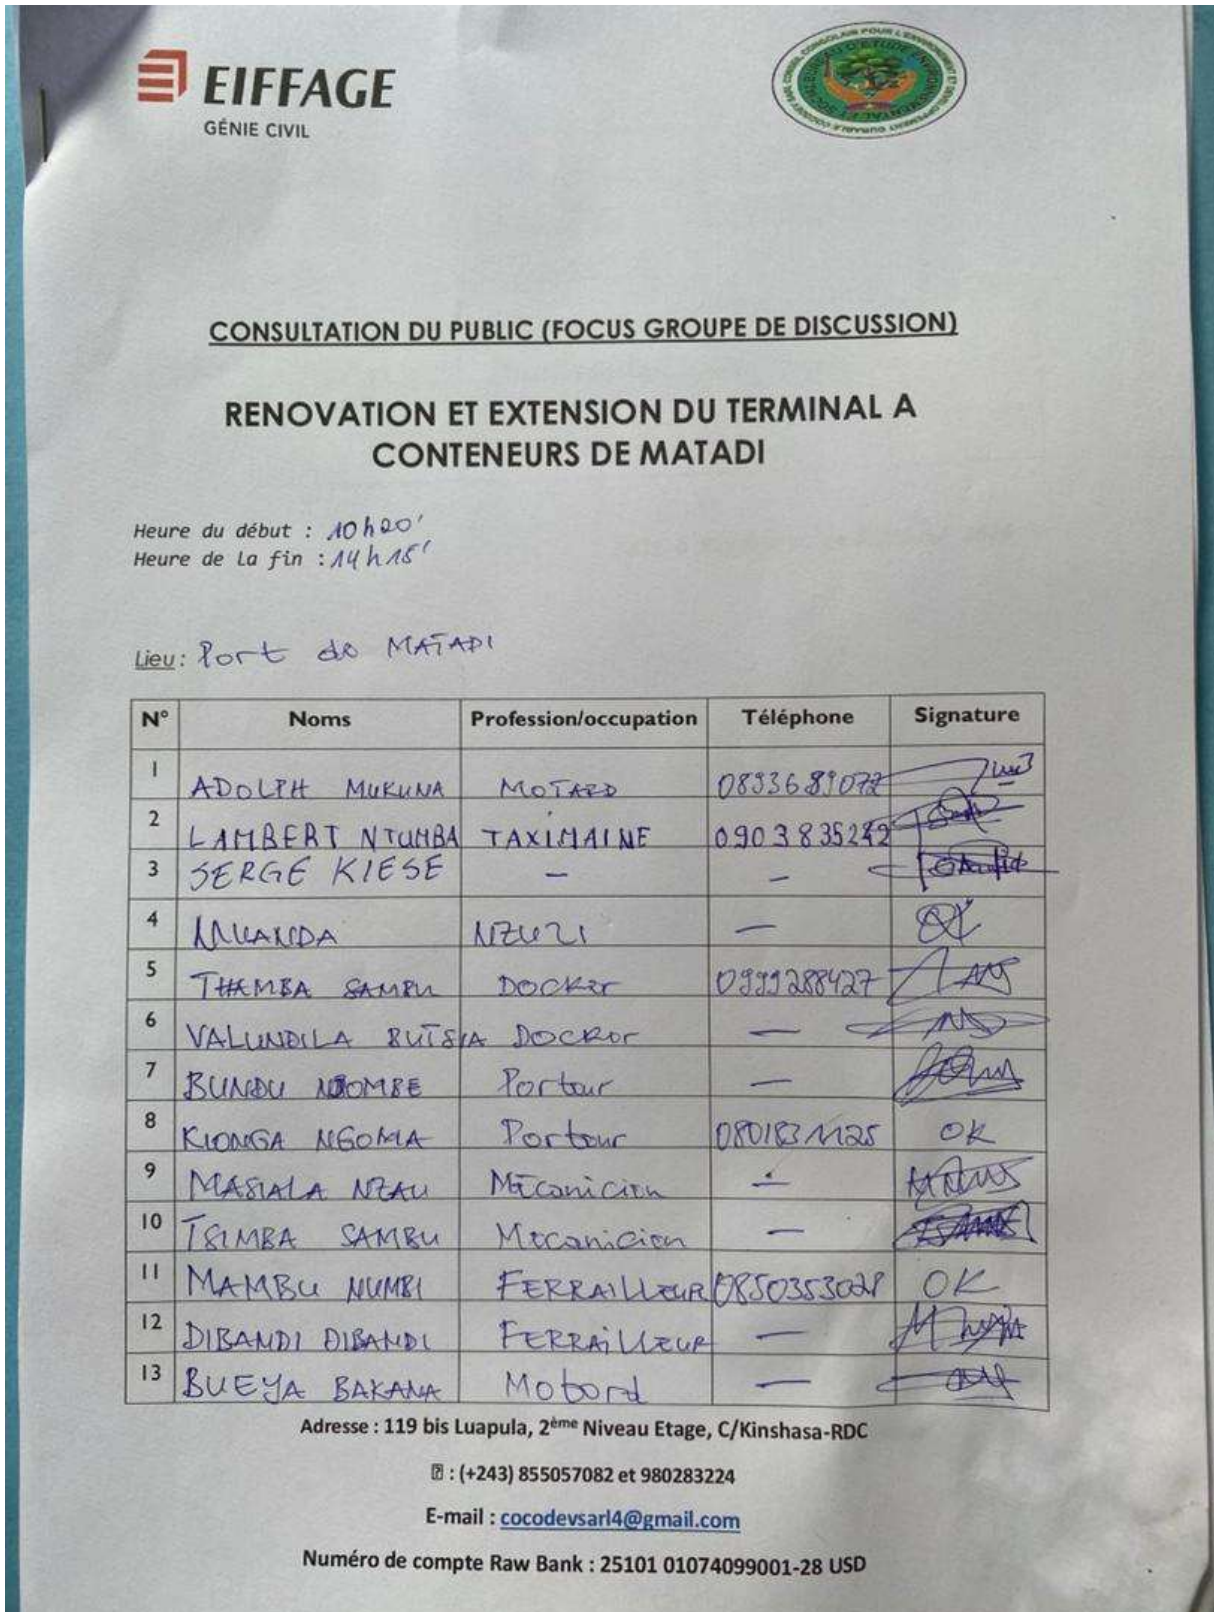 EIFFAGE
GÉNIE CIVIL
CONSULTATION DU PUBLIC (FOCUS GROUPE DE DISCUSSION)
RENOVATION ET EXTENSION DU TERMINAL A
CONTENEURS DE MATADI
Heure du début : 10h20'
Heure de la fin : 14h15'
Lieu : Port de MATADI
N° Noms Profession/occupation Téléphone Signature
1 ADOLPH MUKUNA MOTARD
2 LAMBERT NTUMBA TAXIMAINE
3 SERGE KIESE — —
4 NZUZI —
5 THAMBA SAMBU DOCKER 0999288427
6 VALUNDILA DOCKOR —
7 BUNDU Portour —
8 KIONGA NGOMA Portour OK
9 MASIALA NZAU Mecanicien —
10 TSIMBA SAMBU Mecanicien —
11 MAMBU NUMBI FERRAILLEUR 0850353028 OK
12 DIBANDI DIBANDI FERRAiLLEUR —
13 BUEYA BAKANA Motard —
Adresse : 119 bis Luapula, 2ème Niveau Etage, C/Kinshasa-RDC
: (+243) 855057082 et 980283224
E-mail : cocodevsarl4@gmail.com
Numéro de compte Raw Bank : 25101 01074099001-28 USD